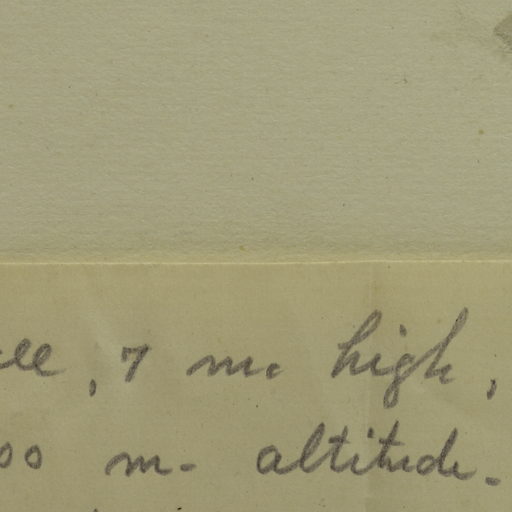 , 7 m. high,
00 m. altitude.